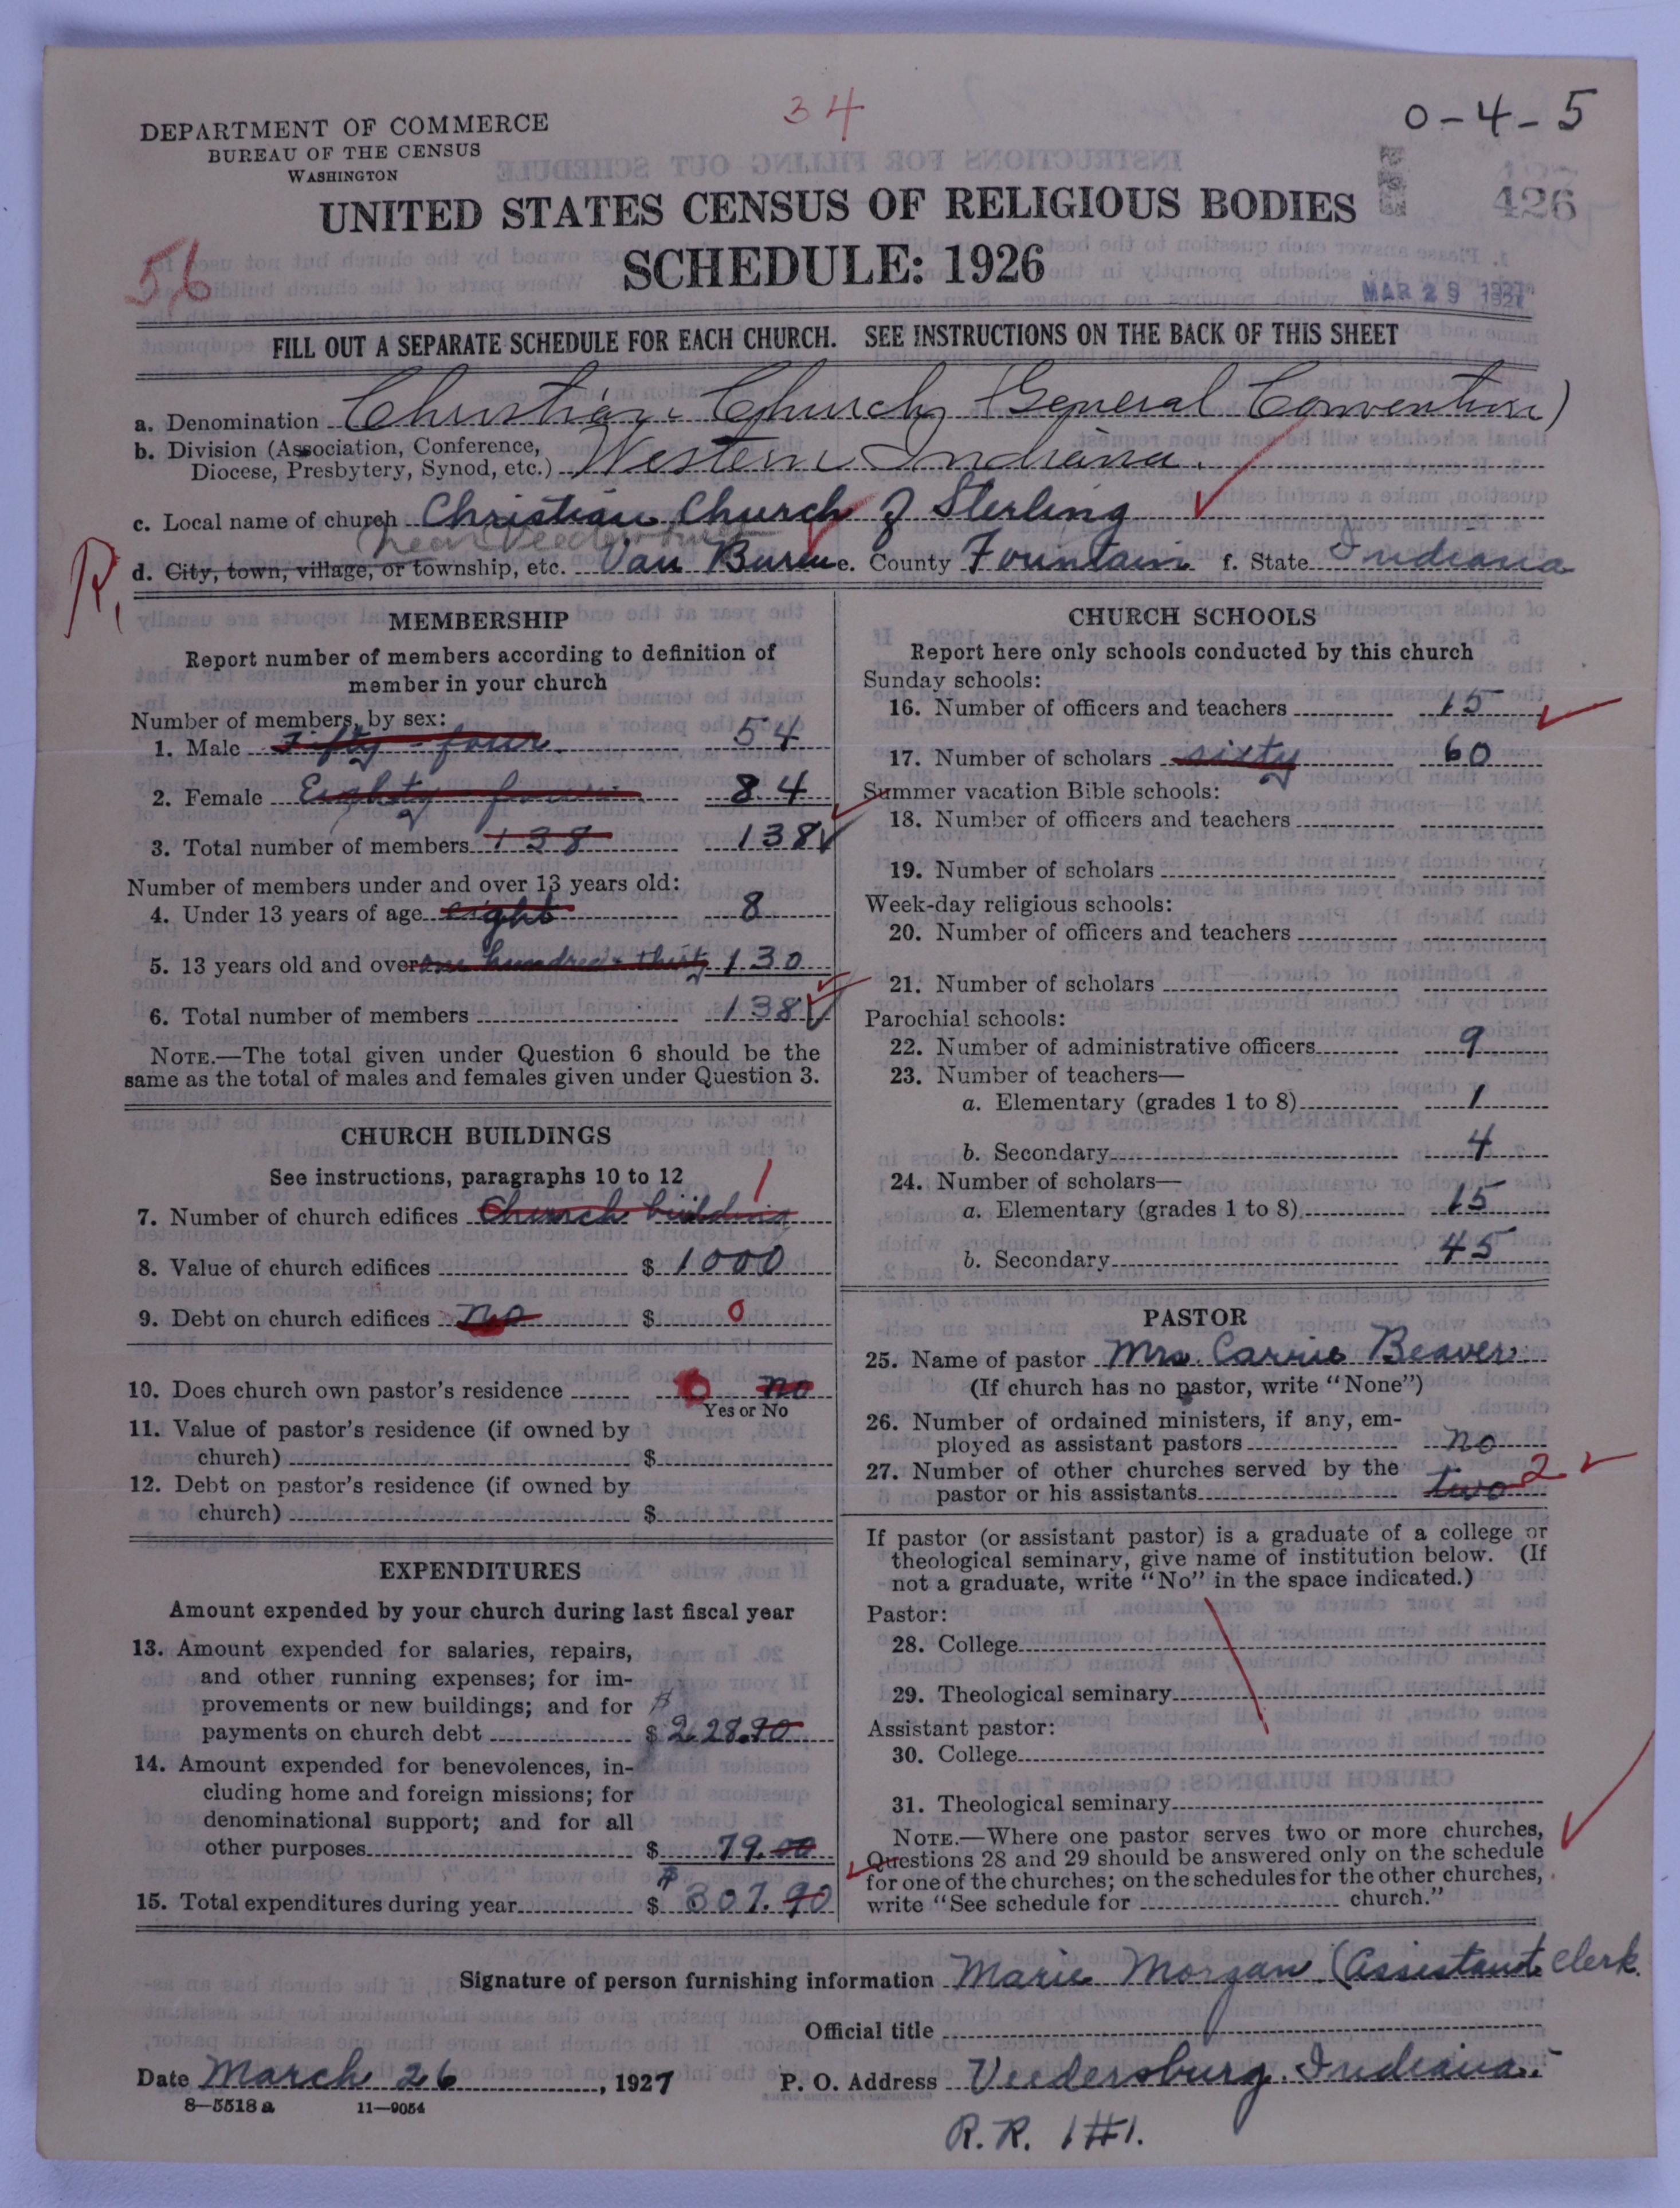 34
0-4-5
DEPARTMENT OF COMMERCE
BUREAU OF THE CENSUS
WASHINGTON
426
UNITED STATES CENSUS OF RELIGIOUS BODIES
SCHEDULE: 1926
56
MAR 29 1927
FILL OUT A SEPARATE SCHEDULE FOR EACH CHURCH. SEE INSTRUCTIONS ON THE BACK OF THIS SHEET
a. Denomination Christian Church (General Convention)
b. Division (Association, Conference,
Diocese, Presbytery, Synod, etc.) Western Indiana.
c. Local name of church Christian Church of Sterling
near Veedersburg
R,
d. City, town, village, or township, etc. Van Buren e. County Fountain f. State Indiana
MEMBERSHIP
Report number of members according to definition of
member in your church
Number of members, by sex:
1. Male Fifty-four 54
2. Female Eighty-four 84
3. Total number of members 138 138
Number of members under and over 13 years old:
4. Under 13 years of age eight 8
5. 13 years old and over one hundred thirty 130
6. Total number of members 138
NOTE.—The total given under Question 6 should be the
same as the total of males and females given under Question 3.
CHURCH BUILDINGS
See instructions, paragraphs 10 to 12
7. Number of church edifices Church building 1
8. Value of church edifices $ 1000
9. Debt on church edifices no $ 0
10. Does church own pastor's residence no
Yes or No
11. Value of pastor's residence (if owned by
church) $
12. Debt on pastor's residence (if owned by
church) $
EXPENDITURES
Amount expended by your church during last fiscal year
13. Amount expended for salaries, repairs,
and other running expenses; for im-
provements or new buildings; and for
payments on church debt $ 228.90
14. Amount expended for benevolences, in-
cluding home and foreign missions; for
denominational support; and for all
other purposes $ 79.00
15. Total expenditures during year $ 307.90
CHURCH SCHOOLS
Report here only schools conducted by this church
Sunday schools:
16. Number of officers and teachers 15
17. Number of scholars sixty 60
Summer vacation Bible schools:
18. Number of officers and teachers
19. Number of scholars
Week-day religious schools:
20. Number of officers and teachers
21. Number of scholars
Parochial schools:
22. Number of administrative officers 9
23. Number of teachers—
a. Elementary (grades 1 to 8) 1
b. Secondary 4
24. Number of scholars—
a. Elementary (grades 1 to 8) 15
b. Secondary 45
PASTOR
25. Name of pastor Mrs. Carrie Beaver
(If church has no pastor, write "None")
26. Number of ordained ministers, if any, em-
ployed as assistant pastors no
27. Number of other churches served by the
pastor or his assistants two 2
If pastor (or assistant pastor) is a graduate of a college or
theological seminary, give name of institution below. (If
not a graduate, write "No" in the space indicated.)
Pastor:
28. College
29. Theological seminary
Assistant pastor:
30. College
31. Theological seminary
NOTE.—Where one pastor serves two or more churches,
Questions 28 and 29 should be answered only on the schedule
for one of the churches; on the schedules for the other churches,
write "See schedule for church."
Signature of person furnishing information Marie Morgan (Assistant Clerk.
Official title
Date March 26, 1927 P. O. Address Veedersburg, Indiana.
8—5518 a 11—9054
R. R. 1#1.